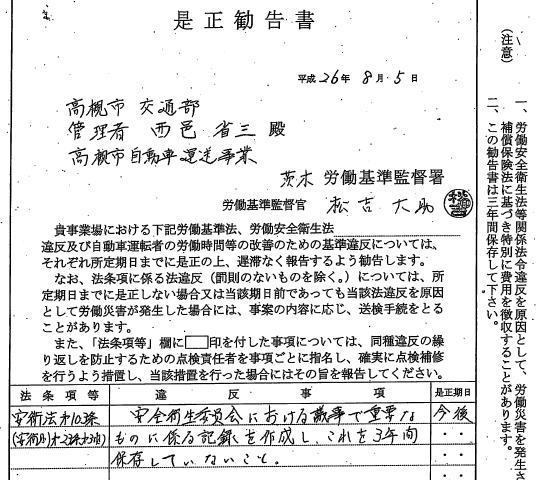 是正勧告書
平成26年8月5日
高槻市 交通部
管理者 西邑 省三 殿
高槻市自動車運送事業
茨木 労働基準監督署
労働基準監督官 松吉 大助
貴事業場における下記労働基準法、労働安全衛生法
違反及び自動車運転者の労働時間等の改善のための基準違反については、
それぞれ所定期日までに是正の上、遅滞なく報告するよう勧告します。
なお、法条項に係る法違反(罰則のないものを除く。)については、所
定期日までに是正しない場合又は当該期日前であっても当該法違反を原因
として労働災害が発生した場合には、事案の内容に応じ、送検手続をとる
ことがあります。
また、「法条項等」欄に□印を付した事項については、同種違反の繰
り返しを防止するための点検責任者を事項ごとに指名し、確実に点検補修
を行うよう措置し、当該措置を行った場合にはその旨を報告してください。
法条項等 違反事項 是正期日
安衛法第103条 安全衛生委員会における議事で重要な 今後
ものに係る記録を作成し、これを3年間 ・・
保存していないこと。 ・・
(注意)
一、労働安全衛生法等関係法令違反を原因として、労働災害を発生さ
補償保険法に基づき特別に費用を徴収することがあります。
二、この勧告書は三年間保存して下さい。